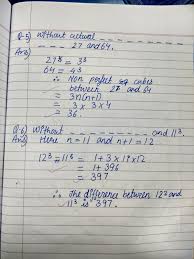 Q-5) Without actual
27 and 64.
Ans) 27 = 3³
64 = 4³
∴ Non perfect cubes
between 27 and 64
= 3n(n+1)
= 3 x 3 x 4
= 36.
Q-6) Without and 11³.
Ans) Here n = 11 and n+1 = 12
12³ - 11³ = 1 + 3 x 11 x 12
= 1 + 396
= 397
∴ The difference between 12³ and
11³ is 397.